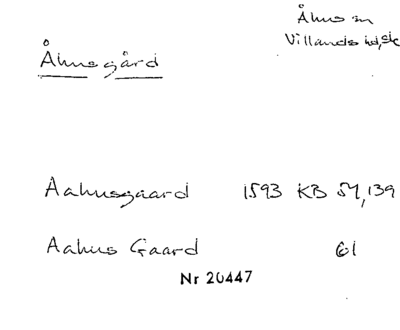 Åhus sn
Villands hd, Sk
Åhusgård
Aahusgaard 1593 KB 54,139
Aahus Gaard 61
Nr 20447